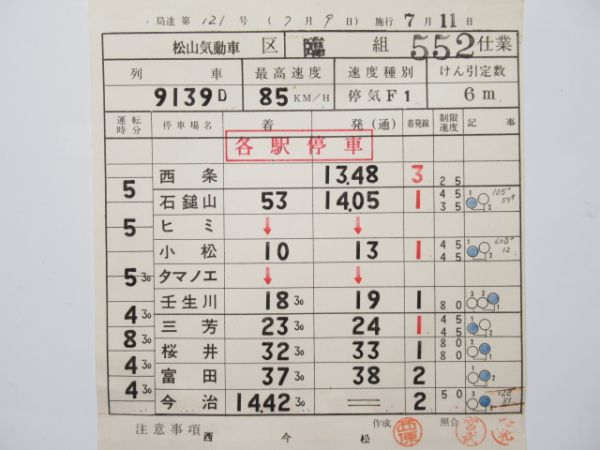 局達第121号 (7月9日) 施行7月11日
松山気動車 区 臨 組 552仕業
列車 最高速度 速度種別 けん引定数
9139D 85KM/H 停気F1 6m
運転時分 停車場名 着 発(通) 着発線 制限速度 記事
各駅停車
西条 13.48 3 25
5
石鎚山 53 14.05 1 45 35
5
ヒミ ↓ ↓
小松 10 13 1 45 45
タマノエ ↓ ↓
5 30
壬生川 18 30 19 1 80
4 30
三芳 23 30 24 1 45 45
8 30
桜井 32 30 33 1 80 80
4 30
富田 37 30 38 2
4 30
今治 14.42 30 = 2 50
注意事項 西 今 松 作成 西原 照合 宮武